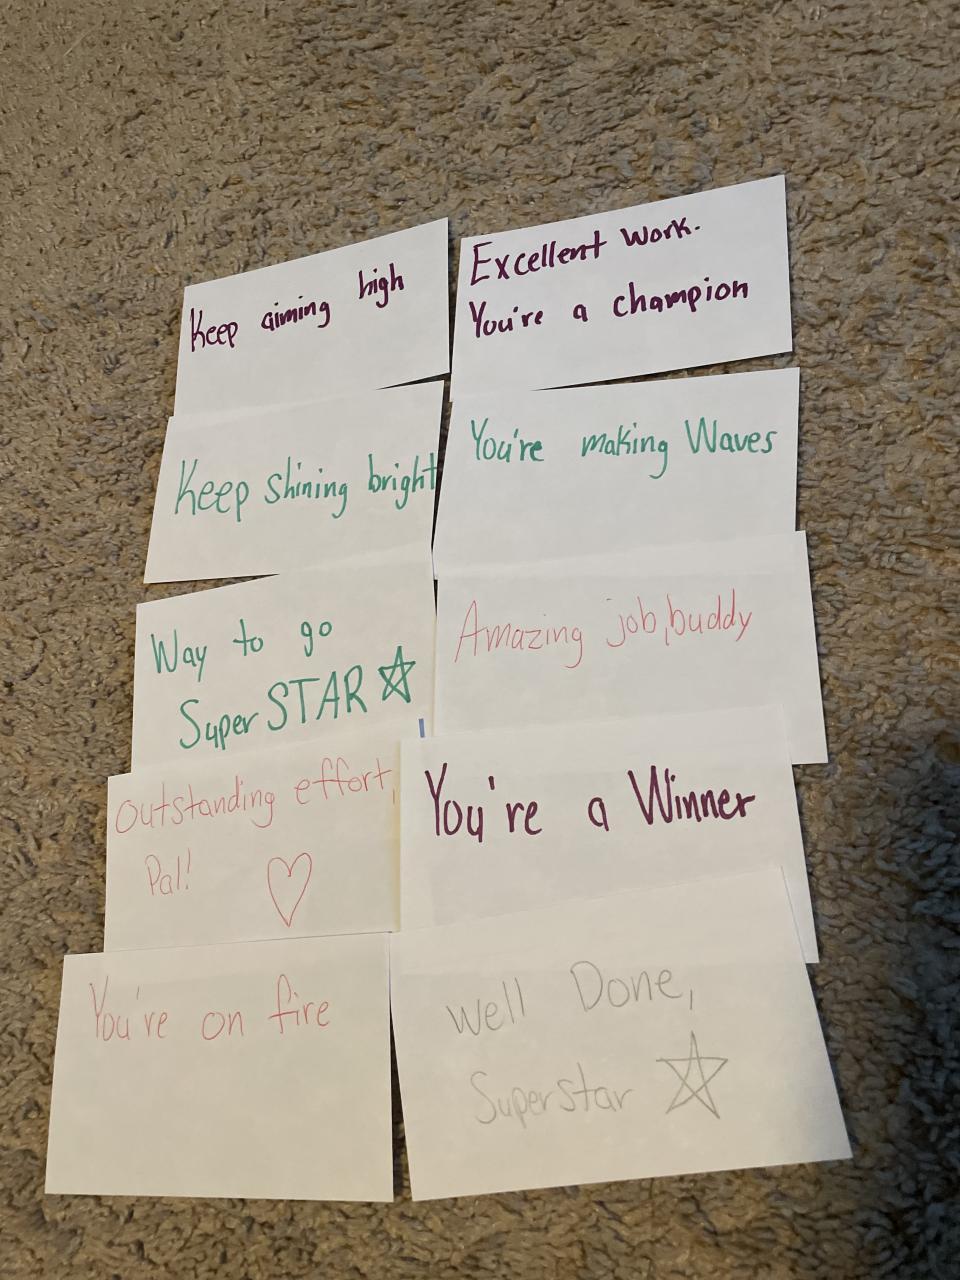 Keep aiming high
Excellent work.
You're a champion
Keep shining bright
You're making Waves
Way to go
Super STAR
Amazing job, buddy
Outstanding effort,
Pal!
You're a Winner
You're on fire
Well Done,
Superstar